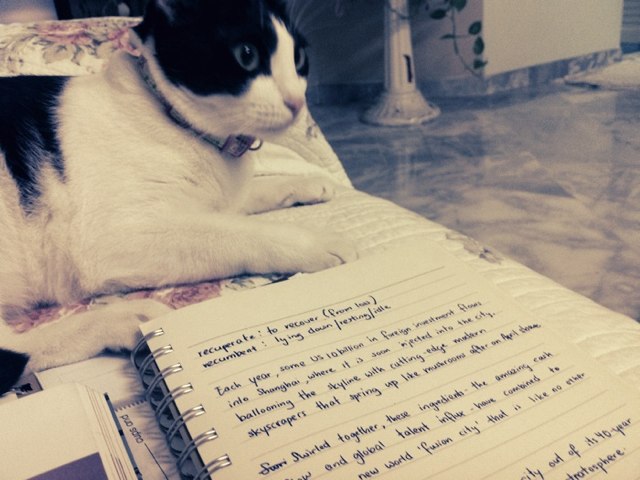 recuperate : to recover (from loss)
recumbent : lying down/resting/idle
Each year, some US 10 billion in foreign investment flows
into Shanghai, where it is soon injected into the city,
ballooning the skyline with cutting-edge modern
skyscrapers that spring up like mushrooms after an April shower.
Swirled together, these ingredients - the amazing cash
flow and global talent influx - have combined to
new world fusion city that is like no other
city out of its 40-year
stratosphere.
caps and